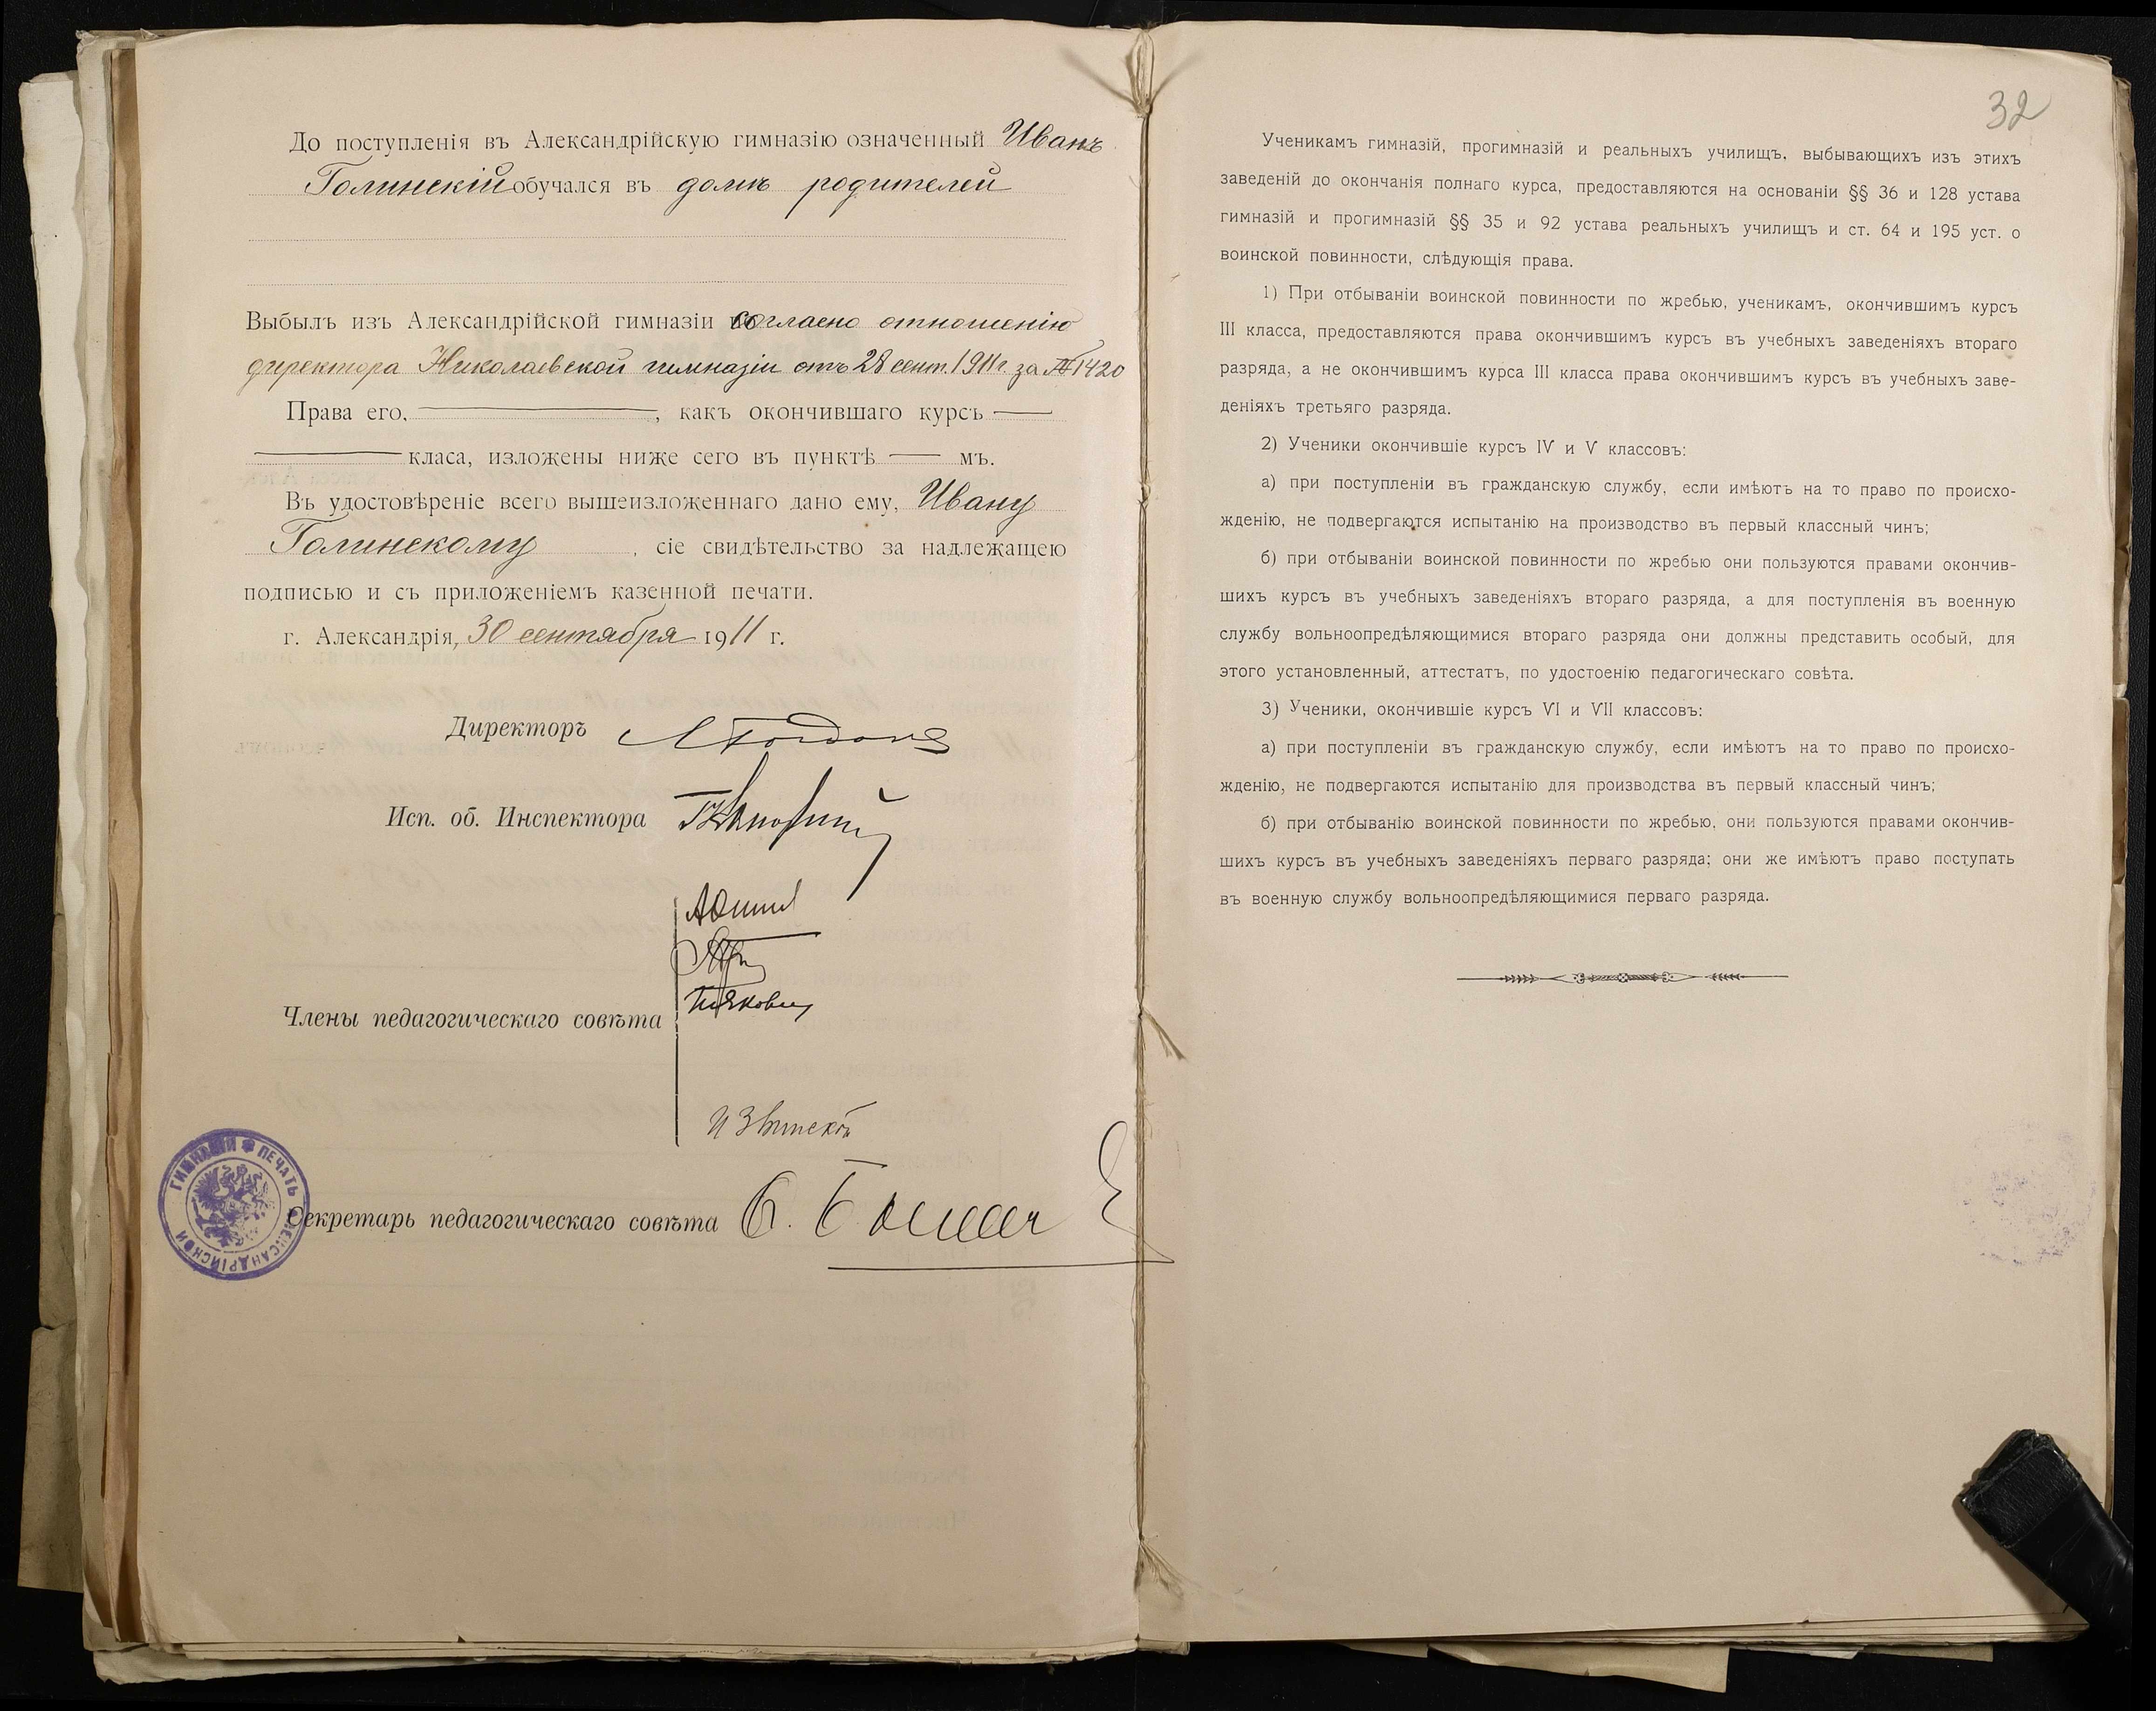 До поступленія въ Александрійскую гимназію означенный Иванъ
Голинскій обучался въ домѣ родителей
Выбылъ изъ Александрійской гимназіи согласно отношенію
директора Николаевской гимназіи отъ 28 сент. 1911 г. за № 1420
Права его, —, какъ окончившаго курсъ —
— класа, изложены ниже сего въ пунктѣ — мъ.
Въ удостовѣреніе всего вышеизложеннаго дано ему, Ивану
Голинскому, сіе свидѣтельство за надлежащею
подписью и съ приложеніемъ казенной печати.
г. Александрія, 30 сентября 1911 г.
Директоръ
Исп. об. Инспектора
Члены педагогическаго совѣта
Секретарь педагогическаго совѣта
ПЕЧАТЬ АЛЕКСАНДРІЙСКОЙ ГИМНАЗІИ
32
Ученикамъ гимназій, прогимназій и реальныхъ училищъ, выбывающихъ изъ этихъ
заведеній до окончанія полнаго курса, предоставляются на основаніи §§ 36 и 128 устава
гимназій и прогимназій §§ 35 и 92 устава реальныхъ училищъ и ст. 64 и 195 уст. о
воинской повинности, слѣдующія права.
1) При отбываніи воинской повинности по жребью, ученикамъ, окончившимъ курсъ
III класса, предоставляются права окончившимъ курсъ въ учебныхъ заведеніяхъ втораго
разряда, а не окончившимъ курса III класса права окончившимъ курсъ въ учебныхъ заве-
деніяхъ третьяго разряда.
2) Ученики окончившіе курсъ IV и V классовъ:
а) при поступленіи въ гражданскую службу, если имѣютъ на то право по происхо-
жденію, не подвергаются испытанію на производство въ первый классный чинъ;
б) при отбываніи воинской повинности по жребью они пользуются правами окончив-
шихъ курсъ въ учебныхъ заведеніяхъ втораго разряда, а для поступленія въ военную
службу вольноопредѣляющимися втораго разряда они должны представить особый, для
этого установленный, аттестатъ, по удостоенію педагогическаго совѣта.
3) Ученики, окончившіе курсъ VI и VII классовъ:
а) при поступленіи въ гражданскую службу, если имѣютъ на то право по происхо-
жденію, не подвергаются испытанію для производства въ первый классный чинъ;
б) при отбыванію воинской повинности по жребью, они пользуются правами окончив-
шихъ курсъ въ учебныхъ заведеніяхъ перваго разряда; они же имѣютъ право поступать
въ военную службу вольноопредѣляющимися перваго разряда.